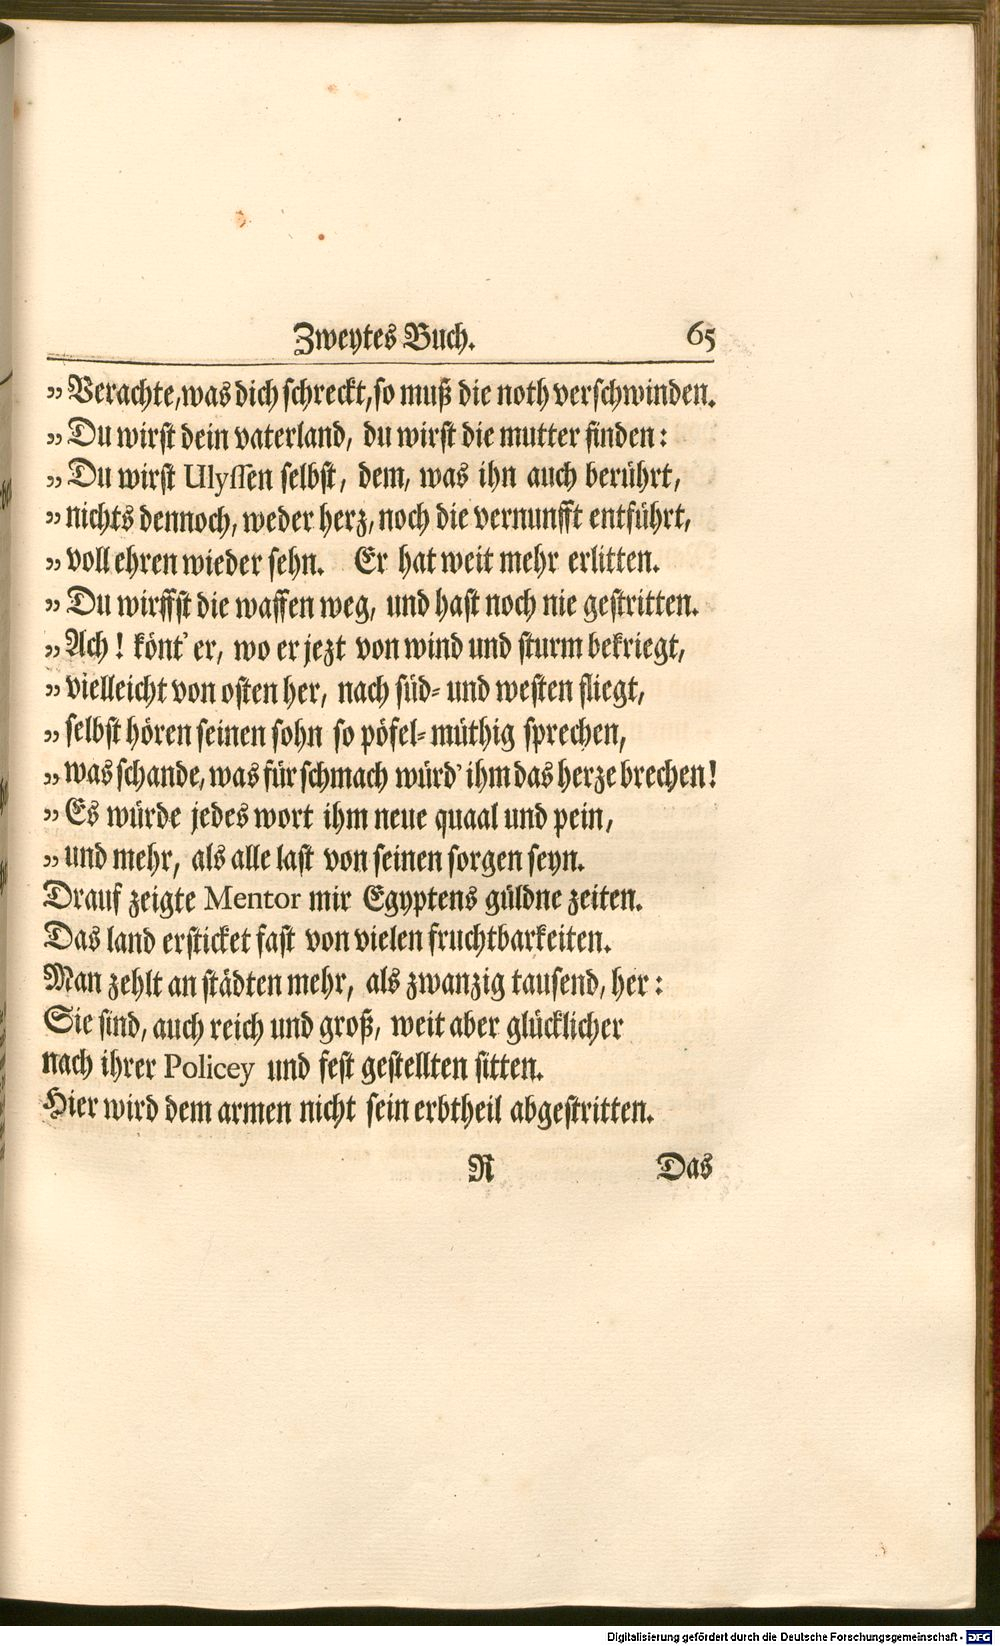 Zweytes Buch. 65
„ Verachte, was dich schreckt, so muß die noth verschwinden.
„ Du wirst dein vaterland, du wirst die mutter finden:
„ Du wirst Ulyssen selbst, dem, was ihn auch berührt,
„ nichts dennoch, weder herz, noch die vernunfft entführt,
„ voll ehren wieder sehn. Er hat weit mehr erlitten.
„ Du wirffst die waffen weg, und hast noch nie gestritten.
„ Ach! könt' er, wo er jezt von wind und sturm bekriegt,
„ vielleicht von osten her, nach süd- und westen fliegt,
„ selbst hören seinen sohn so pöfel-müthig sprechen,
„ was schande, was für schmach würd' ihm das herze brechen!
„ Es würde jedes wort ihm neue quaal und pein,
„ und mehr, als alle last von seinen sorgen seyn.
Drauf zeigte Mentor mir Egyptens güldne zeiten.
Das land ersticket fast von vielen fruchtbarkeiten.
Man zehlt an städten mehr, als zwanzig tausend, her:
Sie sind, auch reich und groß, weit aber glücklicher
nach ihrer Policey und fest gestellten sitten.
Hier wird dem armen nicht sein erbtheil abgestritten.
R Das
Digitalisierung gefördert durch die Deutsche Forschungsgemeinschaft - DFG